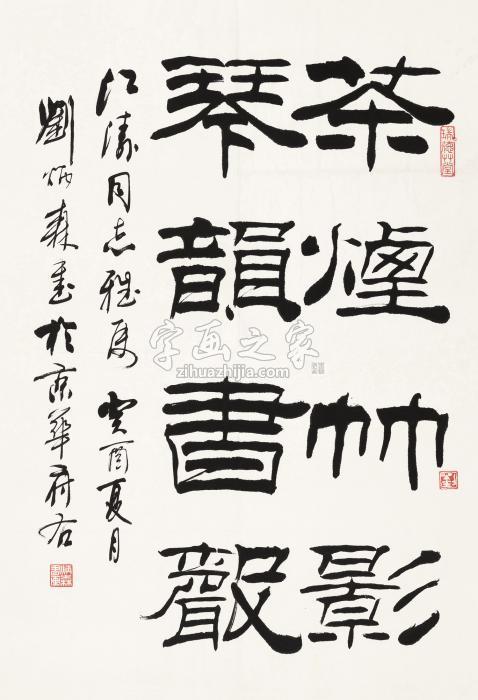 茶煙竹影
琴韻書聲
江濤同志雅屬 癸酉夏月
劉炳森並於京華齋右
字画之家
zihuazhijia.com